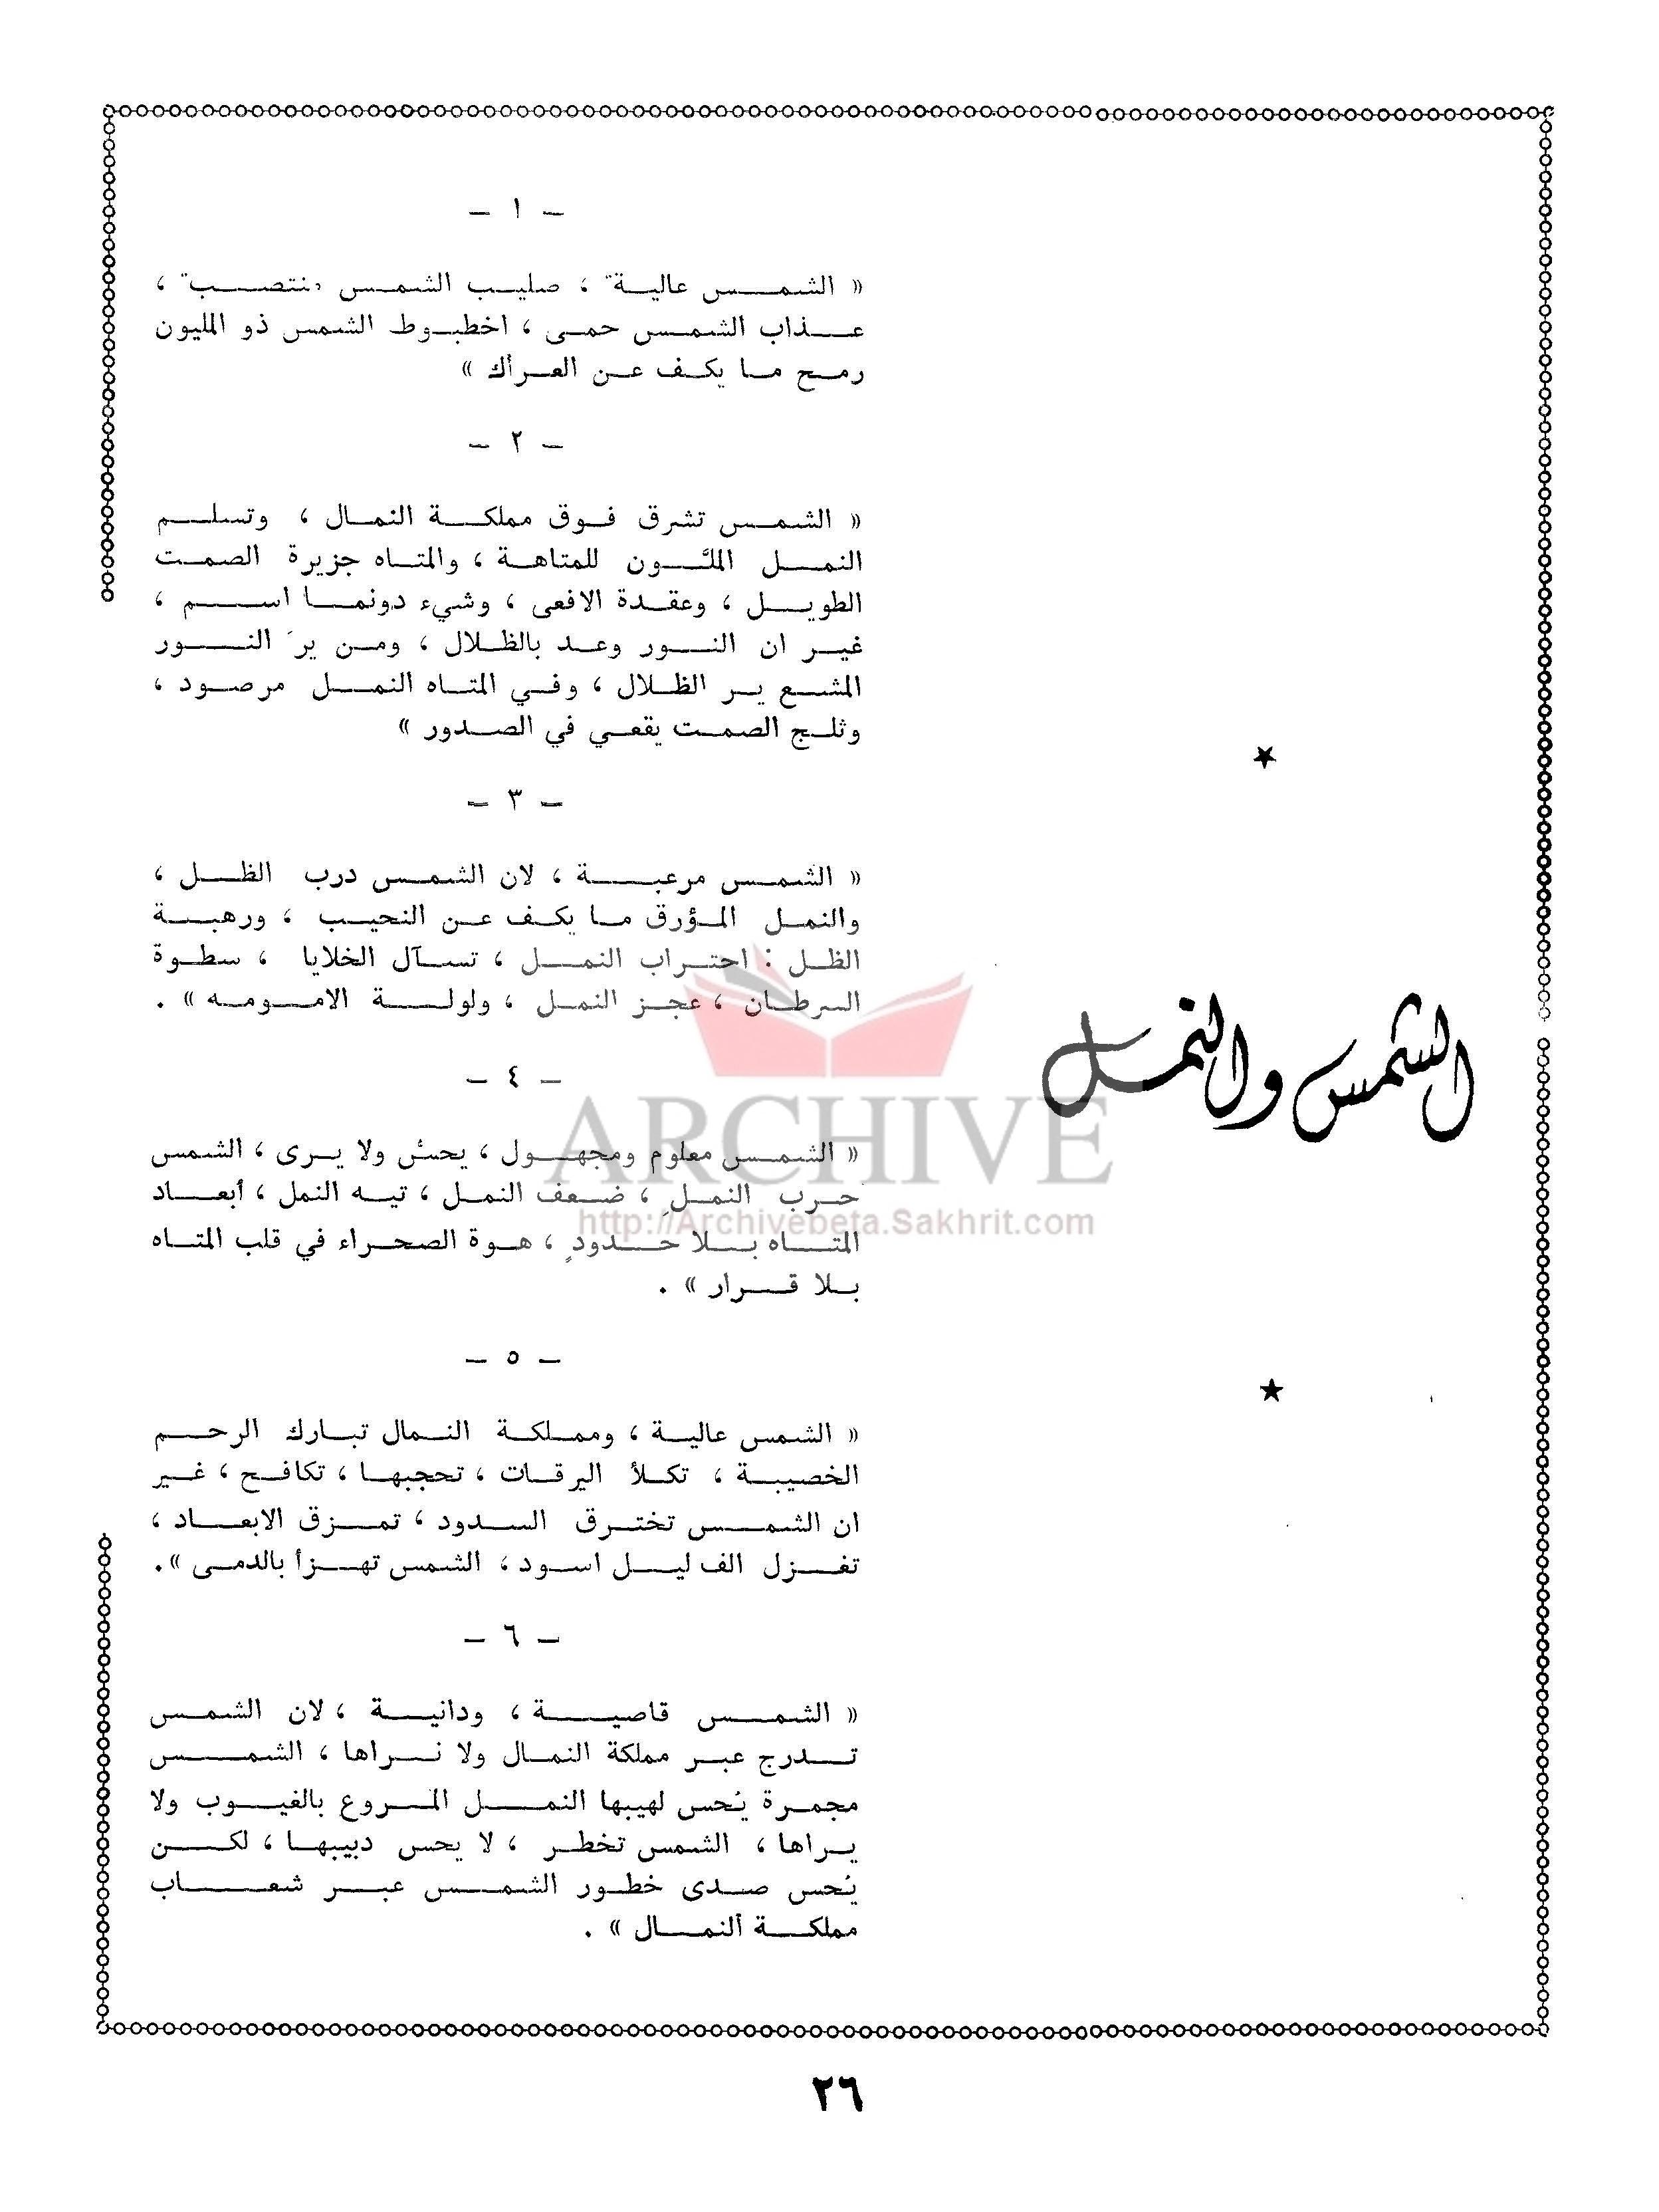 الشمس والنمل
– ١ –
« الشمس عالية ، صليب الشمس منتصب ،
عذاب الشمس حمى ، اخطبوط الشمس ذو المليون
رمح ما يكف عن العراك »
– ٢ –
« الشمس تشرق فوق مملكة النمال ، وتسلم
النمل الملوَّن للمتاهة ، والمتاه جزيرة الصمت
الطويل ، وعقدة الافعى ، وشيء دونما اسم ،
غير ان النور وعد بالظلال ، ومن يرَ النور
المشع ير الظلال ، وفي المتاه النمل مرصود ،
وثلج الصمت يقعي في الصدور »
– ٣ –
« الشمس مرعبة ، لان الشمس درب الظل ،
والنمل المؤرق ما يكف عن النحيب ، ورهبة
الظل : احتراب النمل ، تسآل الخلايا ، سطوة
السرطان ، عجز النمل ، ولولة الامومه » .
– ٤ –
« الشمس معلوم ومجهول ، يحسُّ ولا يرى ، الشمس
حرب النملِ ، ضعف النمل ، تيه النمل ، أبعاد
المتاه بلا حدودٍ ، هوة الصحراء في قلب المتاه
بلا قرار » .
– ٥ –
« الشمس عالية ، ومملكة النمال تبارك الرحم
الخصيبة ، تكلأ اليرقات ، تحجبها ، تكافح ، غير
ان الشمس تخترق السدود ، تمزق الابعاد ،
تغزل الف ليل اسود ، الشمس تهزأ بالدمى ».
– ٦ –
« الشمس قاصية ، ودانية ، لان الشمس
تدرج عبر مملكة النمال ولا نراها ، الشمس
مجمرة يُحس لهيبها النمل المروع بالغيوب ولا
يراها ، الشمس تخطر ، لا يحس دبيبها ، لكن
يُحس صدى خطور الشمس عبر شعاب
مملكة ألنمال » .
ARCHIVE
http://Archivebeta.Sakhrit.com
٢٦